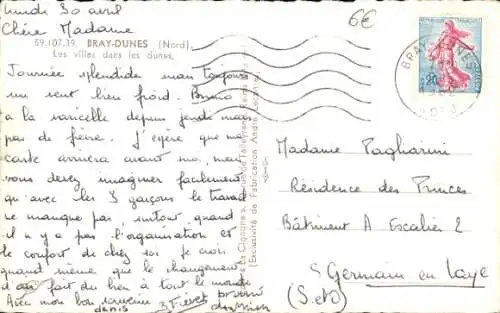 lundi 30 avril
Chère Madame
59.107.39. BRAY-DUNES (Nord)
Les villas dans les dunes.
Journée splendide mais toujours
un vent bien froid. Bruno
a la varicelle depuis jeudi mais
pas de fièvre. J'espère que ma
carte arrivera avant moi, mais
vous devez imaginer facilement
qu'avec les 3 garçons le travail
ne manque pas, surtout quand
il n'y a pas l'organisation et
le confort de chez soi. Je crois
quand même que le changement
d'air fait du bien à tout le monde
Avec mon bon souvenir
denis
bruno
6€
REPUBLIQUE FRANCAISE
0,20
BRAY-DUNES
Madame Pagliarini
Résidence des Princes
Bâtiment A Escalier 2
St Germain en Laye
(S.et O)
(Exclusivité de Fabrication André